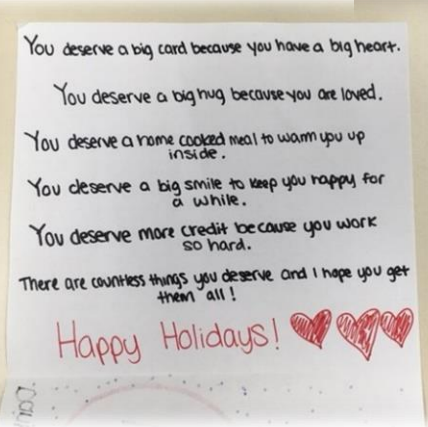 You deserve a big card because you have a big heart.
You deserve a big hug because you are loved.
You deserve a home cooked meal to warm you up
inside.
You deserve a big smile to keep you happy for
a while.
You deserve more credit because you work
so hard.
There are countless things you deserve and I hope you get
them all!
Happy Holidays!